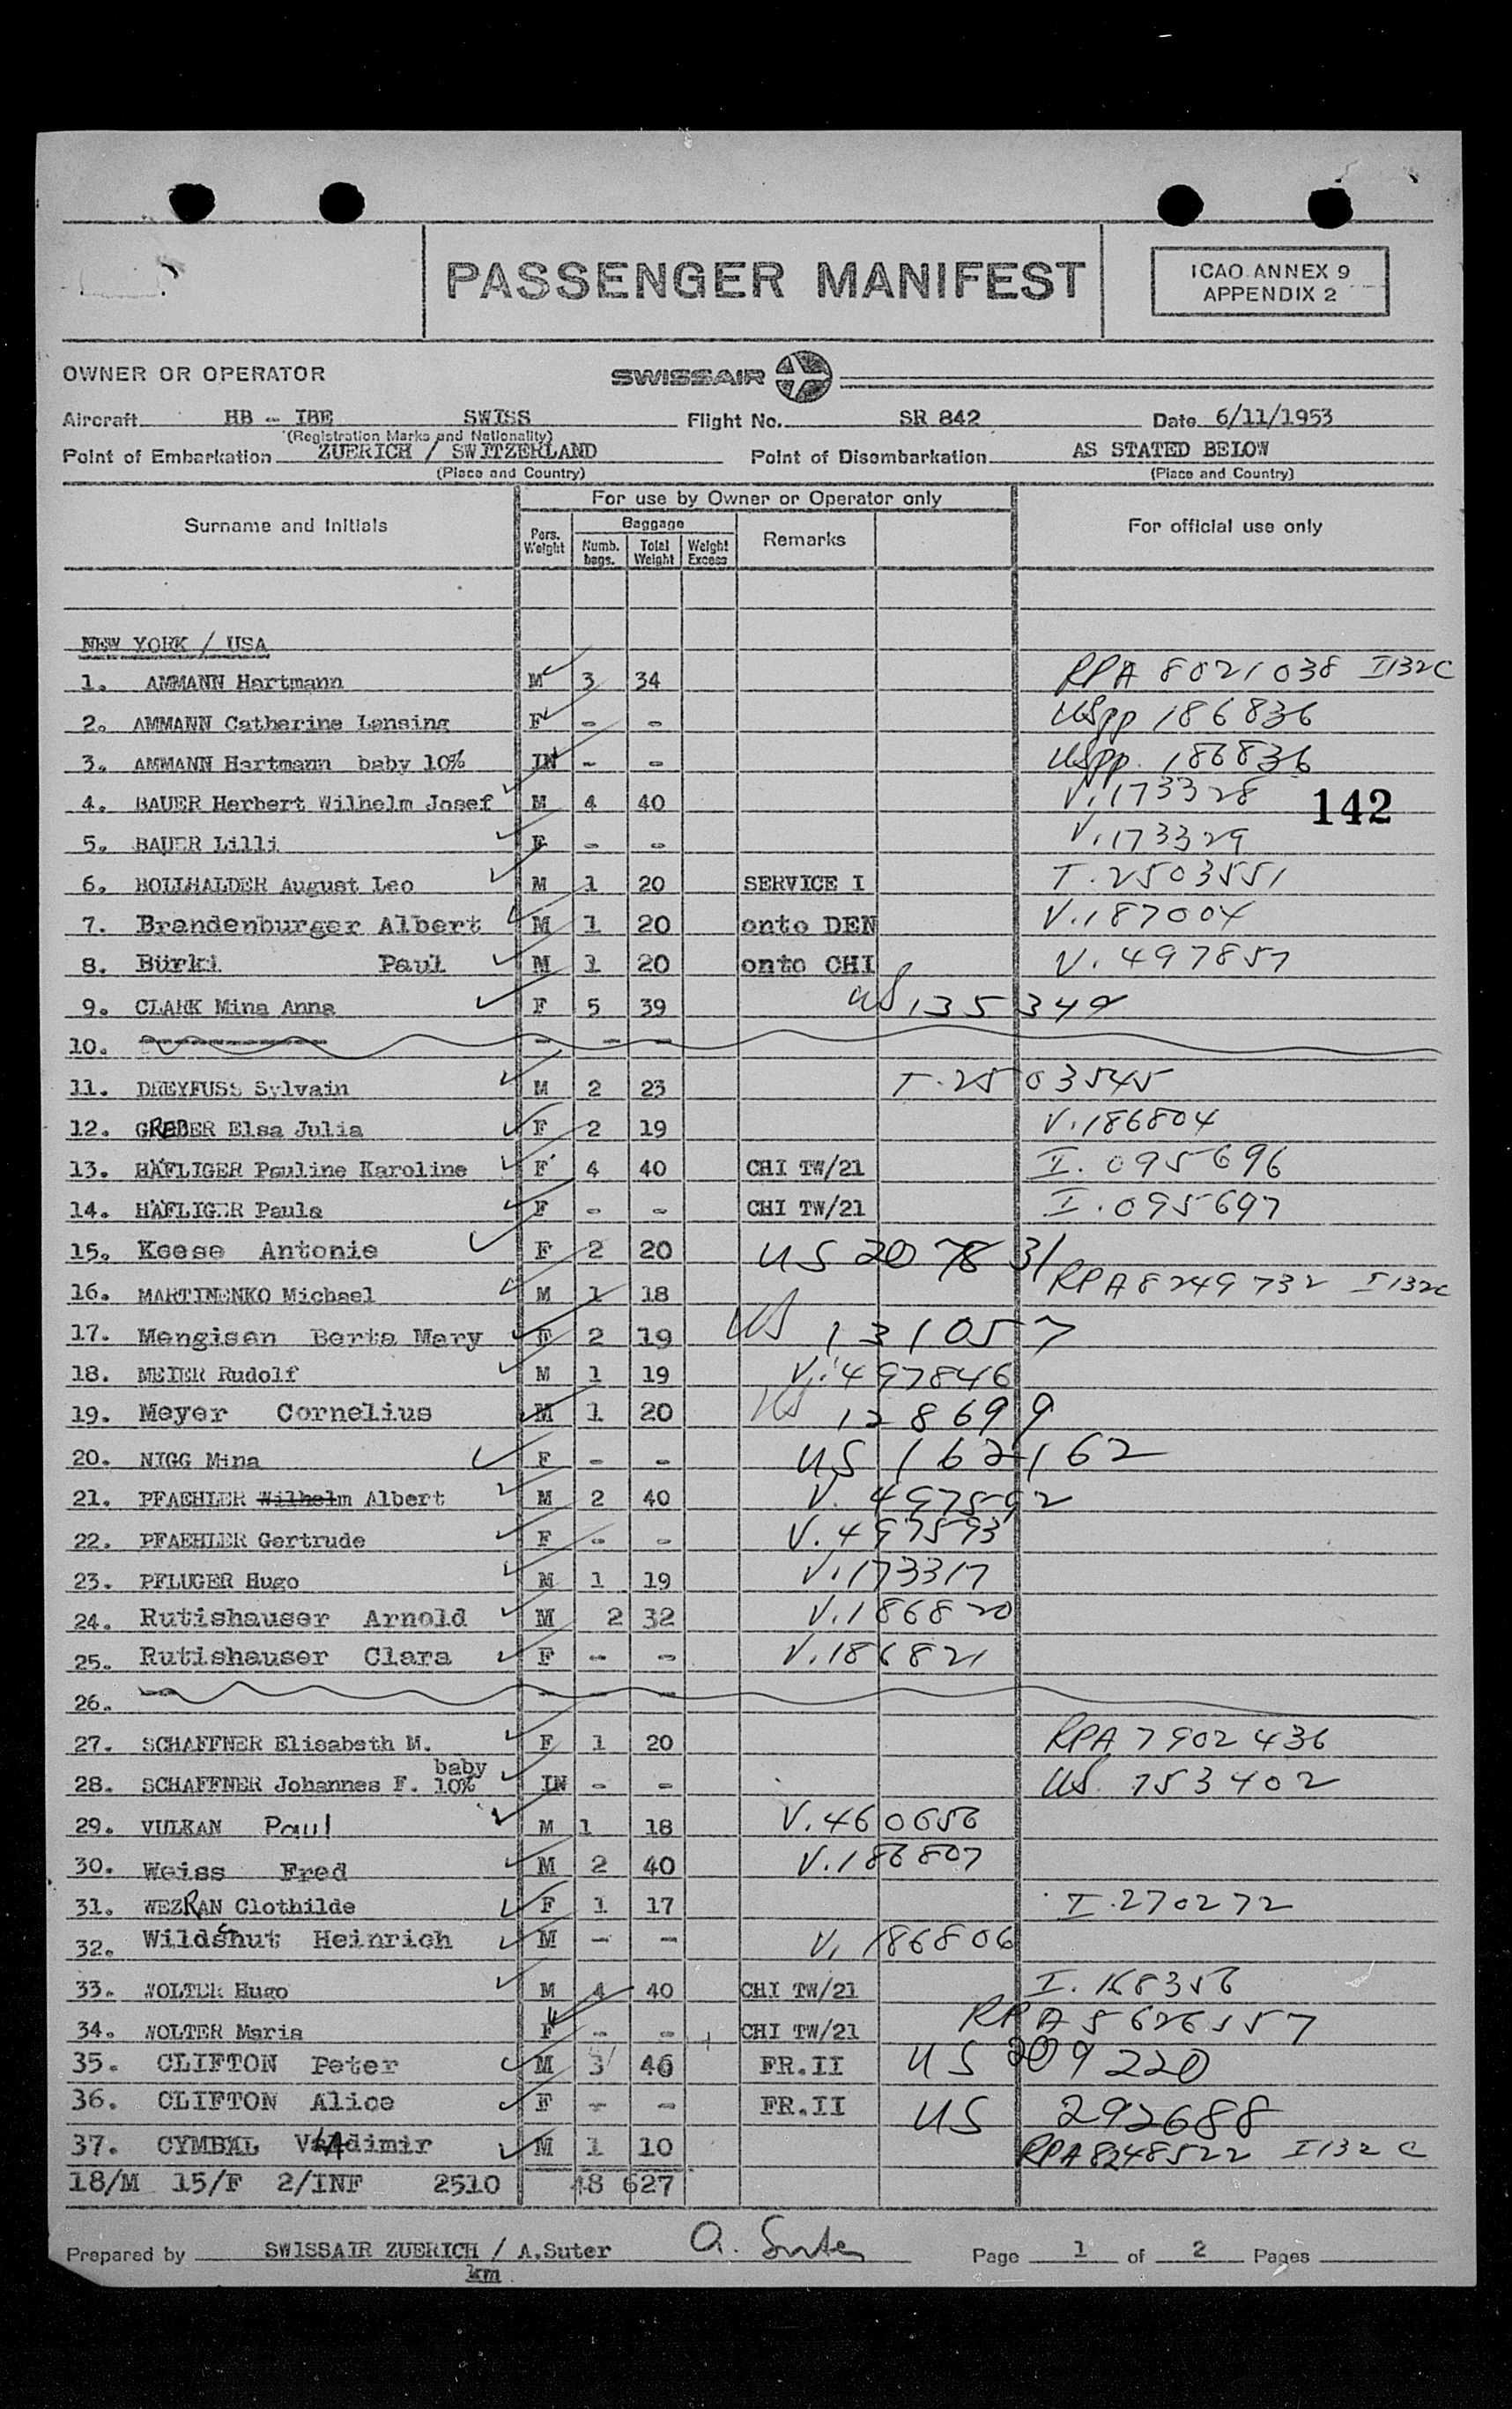 PASSENGER MANIFEST
ICAO ANNEX 9
APPENDIX 2
OWNER OR OPERATOR SWISSAIR
Aircraft HB - IBE SWISS Flight No. SR 842 Date 6/11/1953
(Registration Marks and Nationality)
Point of Embarkation ZUERICH / SWITZERLAND Point of Disembarkation AS STATED BELOW
(Place and Country) (Place and Country)
For use by Owner or Operator only
Surname and Initials Pers. Weight Baggage Numb. bags. Total Weight Weight Excess Remarks For official use only
NEW YORK / USA
1. AMMANN Hartmann M 3 34 RPA 8021038 I132C
2. AMMANN Catherine Lansing F - - USpp 186836
3. AMMANN Hartmann baby 10% IN - - USpp. 186836
4. BAUER Herbert Wilhelm Josef M 4 40 V.173328
142
5. BAUER Lilli F - - V.173329
6. BOLLHALDER August Leo M 1 20 SERVICE I T.2503551
7. Brandenburger Albert M 1 20 onto DEN V.187004
8. Bürki Paul M 1 20 onto CHI V.497857
9. CLARK Mina Anna F 5 39 US 135349
10. - - -
11. DREYFUSS Sylvain M 2 23 T.2503545
12. GREDER Elsa Julia F 2 19 V.186804
13. HÄFLIGER Pauline Karoline F 4 40 CHI TW/21 I.095696
14. HÄFLIGER Paula F - - CHI TW/21 I.095697
15. Keese Antonie F 2 20 US 207831
16. MARTINENKO Michael M 1 18 RPA 8249732 I132C
17. Mengisen Berta Mary F 2 19 US 131057
18. MEIER Rudolf M 1 19 V.497846
19. Meyer Cornelius M 1 20 US 128699
20. NIGG Mina F - - US 162162
21. PFAEHLER Wilhelm Albert M 2 40 V.497592
22. PFAEHLER Gertrude F - - V.497593
23. PFLUGER Hugo M 1 19 V.173317
24. Rutishauser Arnold M 2 32 V.186820
25. Rutishauser Clara F - - V.186821
26. - - -
27. SCHAFFNER Elisabeth M. F 1 20 RPA 7902436
28. SCHAFFNER Johannes F. baby 10% IN - - US. 153402
29. VULKAN Paul M 1 18 V.460656
30. Weiss Fred M 2 40 V.186807
31. WEZRAN Clothilde F 1 17 I.270272
32. Wildshut Heinrich M - - V.186806
33. WOLTER Hugo M 4 40 CHI TW/21 I.168356
34. WOLTER Maria F - - CHI TW/21 RPA 5626557
35. CLIFTON Peter M 3 46 FR.II US 209220
36. CLIFTON Alice F - - FR.II US 292688
37. CYMBAL Vladimir M 1 10 RPA8248522 I132C
18/M 15/F 2/INF 2510 48 627
Prepared by SWISSAIR ZUERICH / A.Suter A. Suter Page 1 of 2 Pages
km